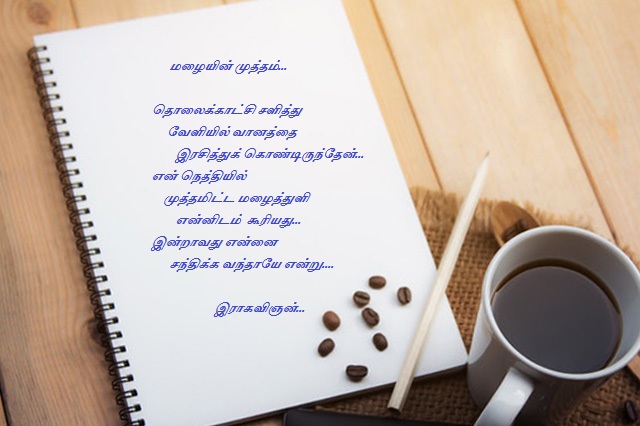 மழையின் முத்தம்...
தொலைக்காட்சி சளித்து
வேளியில் வானத்தை
இரசித்துக் கொண்டிருந்தேன்...
என் நெத்தியில்
முத்தமிட்ட மழைத்துளி
என்னிடம் கூரியது...
இன்றாவது என்னை
சந்திக்க வந்தாயே என்று....
இராகவிஞன்...